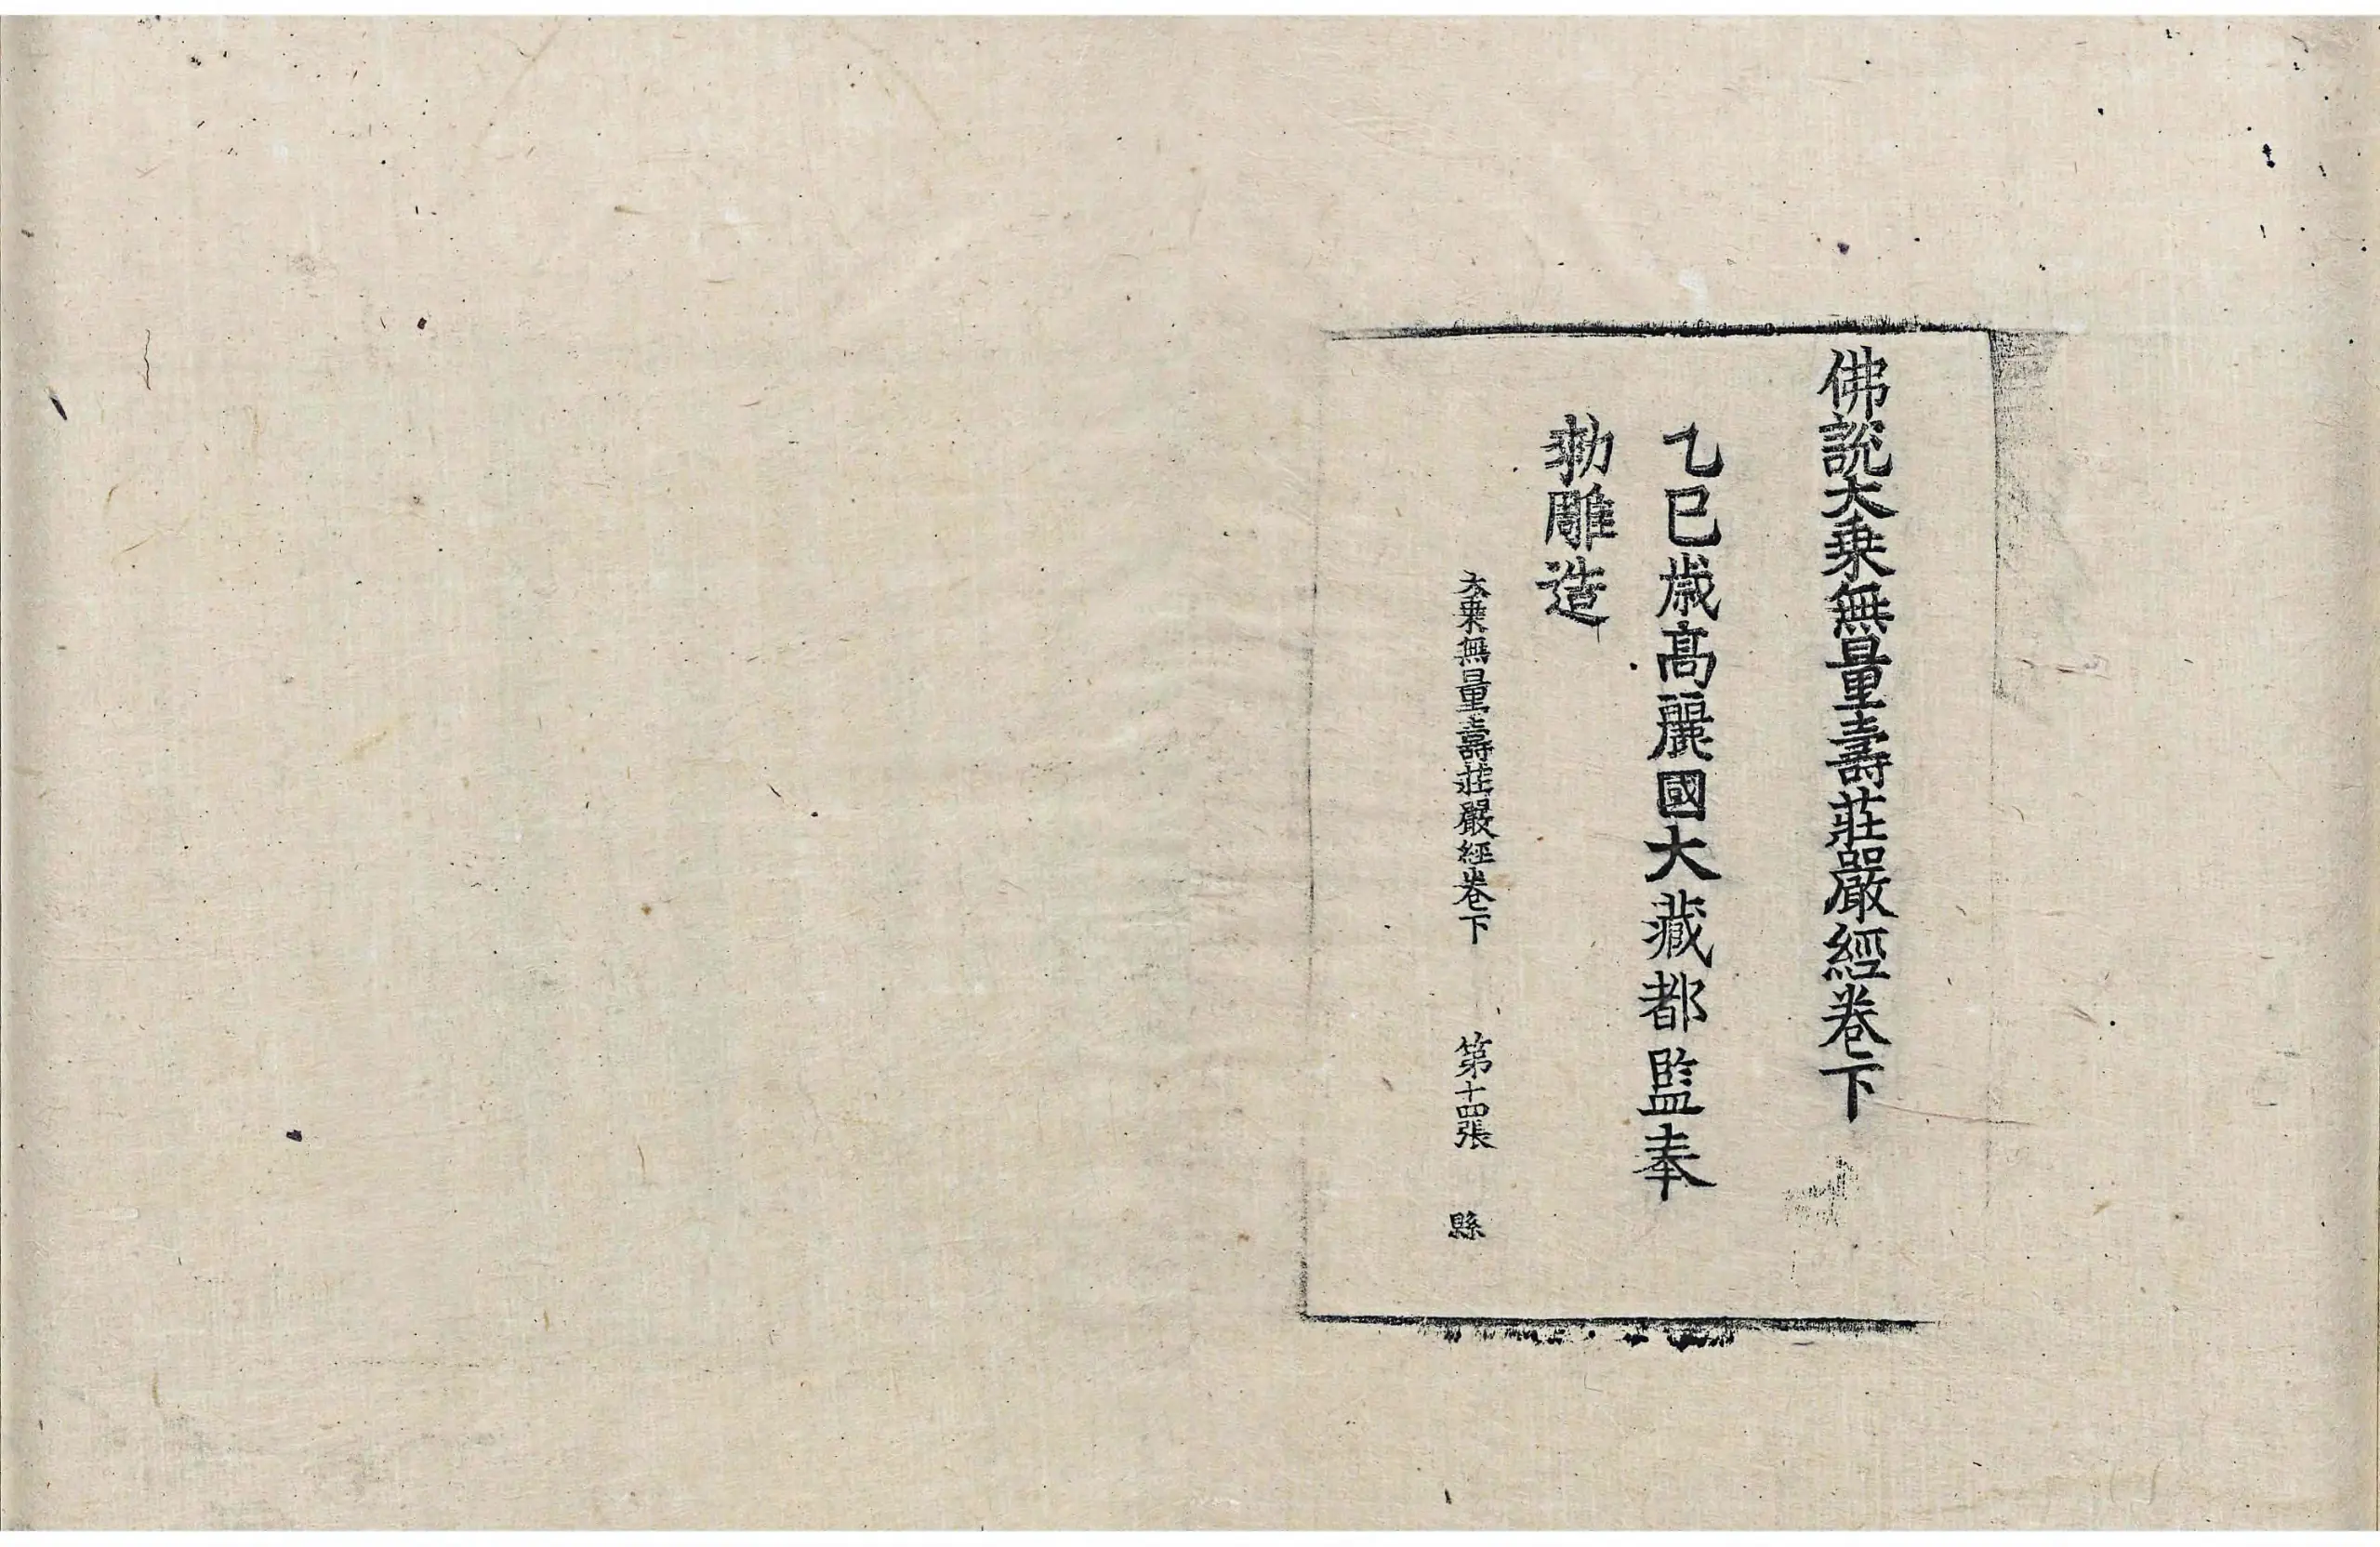 佛說大乗無量壽莊嚴經卷下
乙巳歲高麗國大藏都監奉
勑雕造
大乗無量壽莊嚴經卷下 第十四張 縣